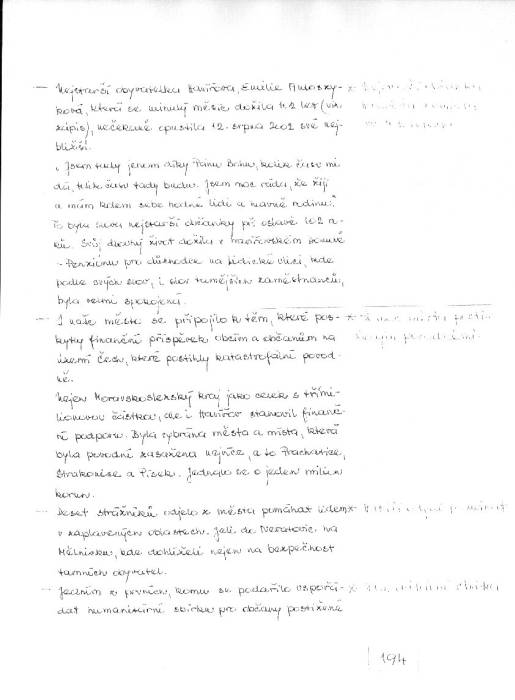 — Nejstarší obyvatelka Havířova, Emílie
ková, která se minulý měsíc dožila 102 let (viz
zápis), nečekaně opustila 12. srpna 2002 své nej-
bližší.
„Jsem tady jenom díky Pánu Bohu, kolik času mi
dá, tolik času tady budu. Jsem moc ráda, že žiji
a mám kolem sebe hodné lidi a hlavně rodinu."
To byla slova nejstarší občanky při oslavě 102 ro-
ků. Svůj dlouhý život dožila v havířovském domově
- Penziónu pro důchodce na Lidické ulici, kde
podle svých slov, i slov tamějších zaměstnanců,
byla velmi spokojená.
— I naše město se připojilo k těm, které pos-
kytly finanční příspěvek obcím a občanům na
území Čech, které postihly katastrofální povod-
ně.
Nejen Moravskoslezský kraj jako celek s třími-
lionovou částkou, ale i Havířov stanovil finanč-
ní podporu. Byla vybrána města a místa, která
byla povodní zasažena nejvíce, a to Prachatice,
Strakonice a Písek. Jednalo se o jeden milion
korun.
— Deset strážníků odjelo z města pomáhat lidem
v zaplavených oblastech. Jeli do Neratovic na
Mělnicku, kde dohlíželi nejen na bezpečnost
tamních obyvatel.
— Jedním z prvních, komu se podařilo uspořá-
dat humanitární sbírku pro občany postižené
194